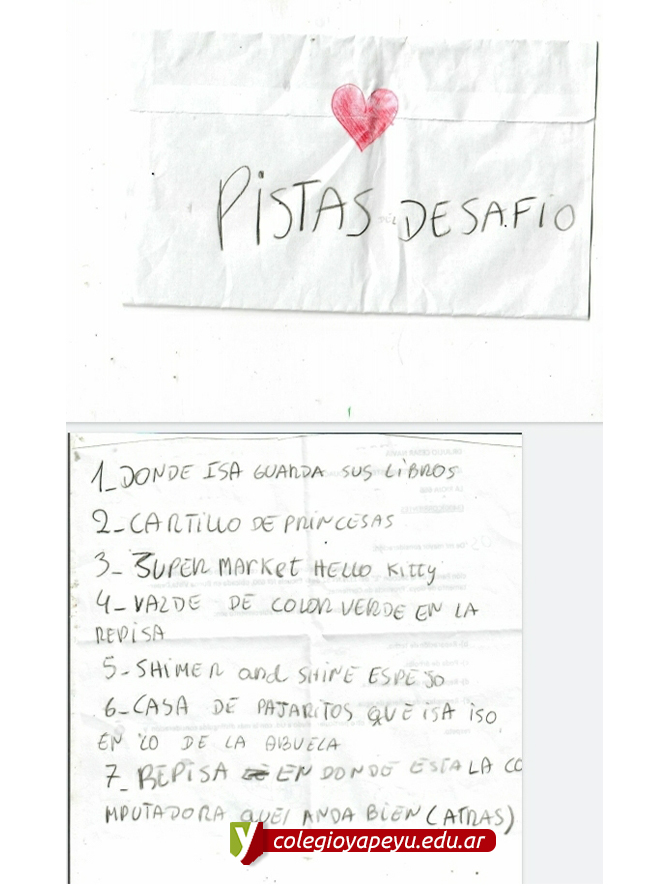 PISTAS DESAFIO
1_DONDE ISA GUARDA SUS LIBROS
2-CARTILLO DE PRINCESAS
3-SUPER MARKET HELLO KITTY
4-VALDE DE COLOR VERDE EN LA
REPISA
5-SHIMER and SHINE ESPEJO
6-CASA DE PAJARITOS QUE ISA ISO
EN LO DE LA ABUELA
7_REPISA EN DONDE ESTA LA CO
MPUTADORA QUE ANDA BIEN (ATRAS)
colegioyapeyu.edu.ar